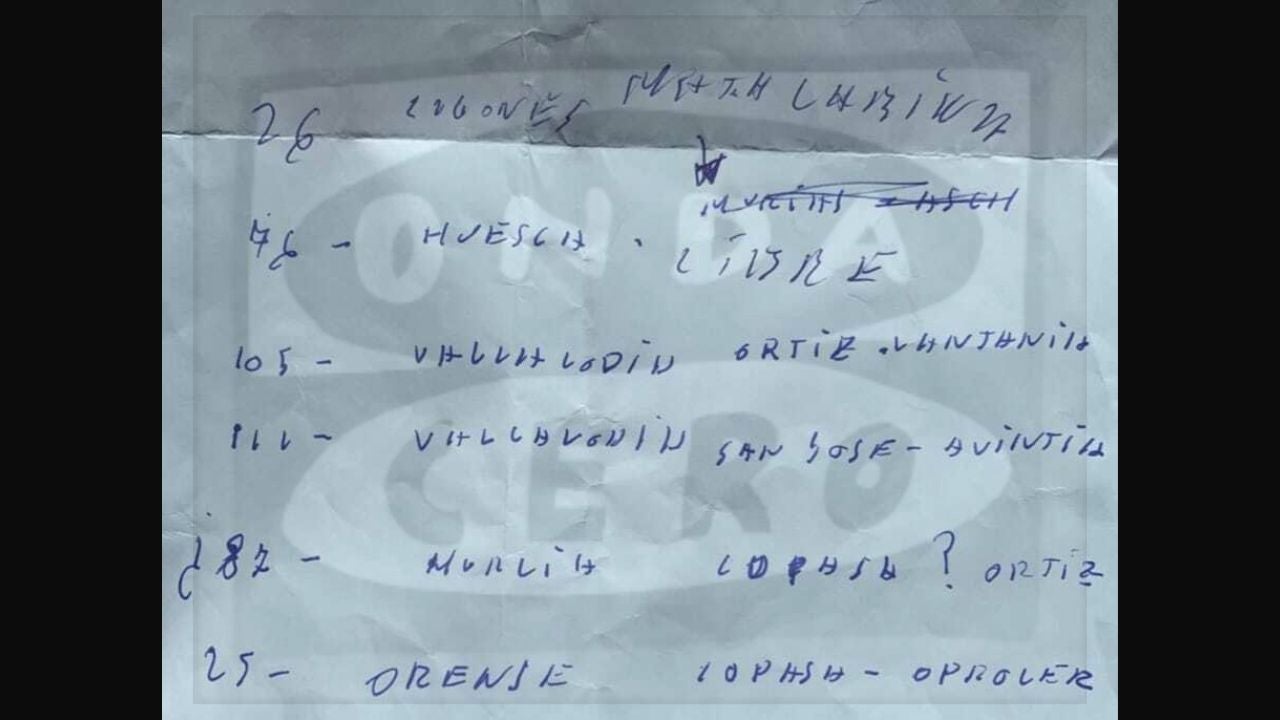 26 LUGONES MATA LABRINZA
MURIAS - ASCH
76 - HUESCA . LIBRE
105 - VALLLALODID ORTIZ . VANJANIA
111 - VALLAVODID SAN JOSE - AVINTIA
¿87 - MURCIA COPASA? ORTIZ
25 - ORENSE COPASA - OPROLER
ONDA
CERO